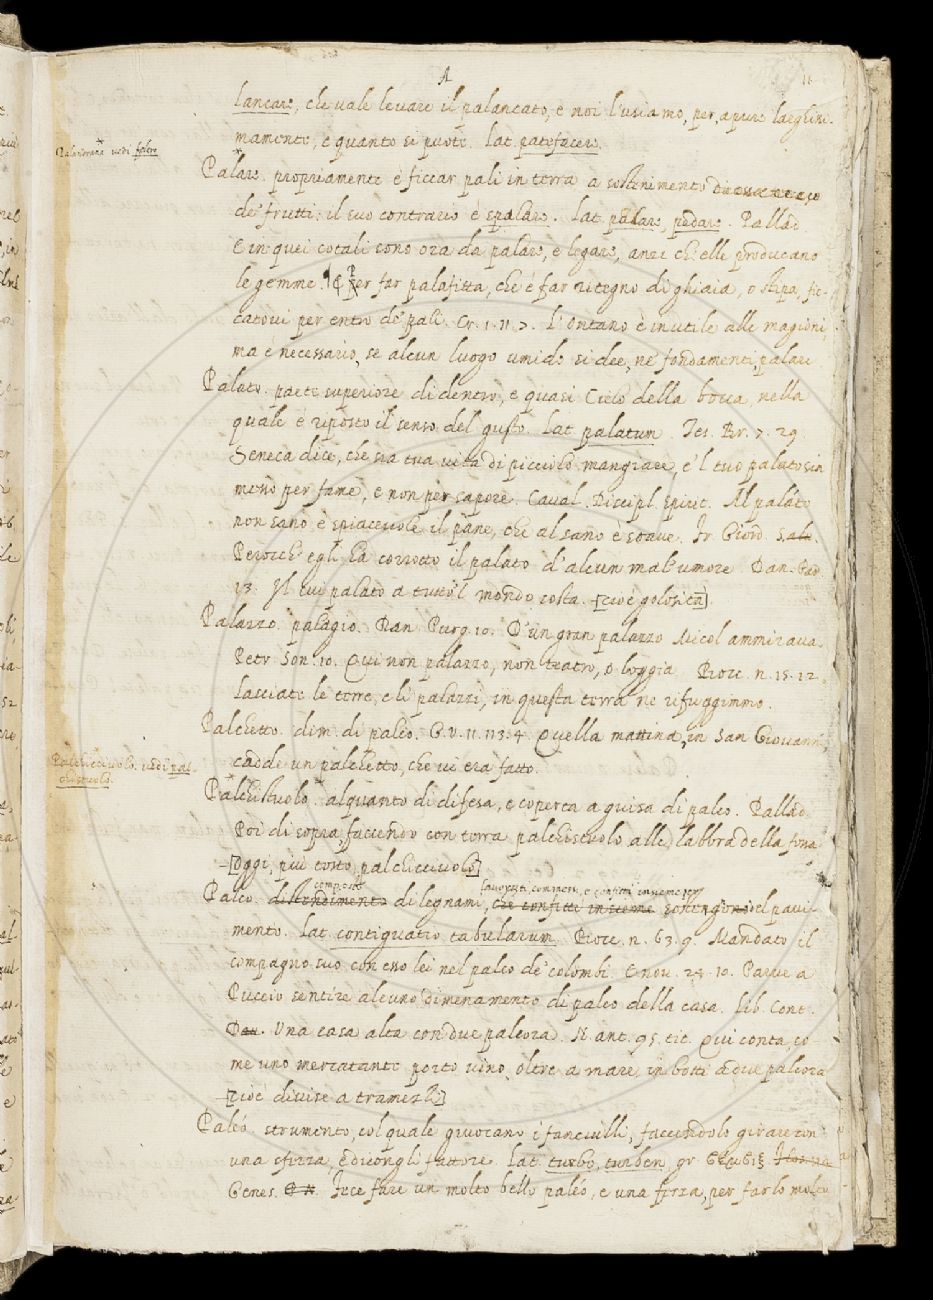 A
lancare, che vale levare il palancato, e noi l'usiamo, per, aprire larghissi-
mamente, e quanto si puote. Lat. patefacere.
Palandrana vedi
Palare. propriamente è ficcar pali in terra a sostenimento
de' frutti: il suo contrario è spalare. Lat. palare, pedare. Pallad.
E in quei cotali sono ora da palare, e legare, anzi ch' elle producano
le gemme. ¶ Per far palafitta, che è far ritegno di ghiaia, o stipa, fic-
catovi per entro de' pali. Cr. 1. 11. 7. L'Ontano è inutile alle magioni,
ma è necessario, se alcun luogo umido si dee, ne' fondamenti, palare
Palato. parte superiore di dentro, e quasi Cielo della bocca, nella
quale è riposto il senso del gusto. Lat. palatum. Tes. Br. 7. 29.
Seneca dice, che sia tua vita di piccolo mangiare, e 'l tuo palato sia
mosso per fame, e non per sapore. Caval. Discipl. spirit. Al palato
non sano è spiacevole il pane, che al sano è soave. Fr. Giord. Salv.
Perocch' egli ha corrotto il palato d'alcun mal' umore. Dan. Par.
13. Il cui palato a tutto 'l mondo costa. [cioè golosità]
Palazzo. palagio. Dan. Purg. 10. D'un gran palazzo Micol ammirava.
Petr. Son. 10. Qui non palazzo, non teatro, o loggia. Bocc. n. 15. 12.
Lasciate le torre, e li palazzi, in questa terra ne rifuggimmo.
Palchetto. dim. di palco. G. V. 11. 113. 4. Quella mattina, in San Giovanni,
cadde un palchetto, che vi era fatto.
Palchicciuolo. vedi pal-
chistuolo.
Palchistuolo. alquanto di difesa, e coperta a guisa di palco. Pallad.
Poi di sopra, faccendo con terra palchistuolo alle labbra della fossa
[Oggi, più tosto, palchicciuolo]
composto
commessi, e confitti insieme per
Palco. distendimento di legnami, che confitti insieme sostengono del pavi-
mento. Lat. contignatio tabularum. Bocc. n. 63. 9. Mandato il
compagno suo con esso lei nel palco de' colombi. E nov. 24. 10. Parve a
Puccio sentire alcuno dimenamento di palco della casa. Lib. Cont.
Una casa alta con due palcora. N. ant. 95. tit. Qui conta, co-
me uno mercatante portò vino, oltre a mare, in botti a due palcora
[cioè divise a tramezzi]
Paléo. strumento, col quale giuocano i fanciulli, faccendolo girare con
una sferza, e dicongli fattore. Lat. turbo, turben, gr.
Genes. Fece fare un molto bello paléo, e una ferza, per farlo molto